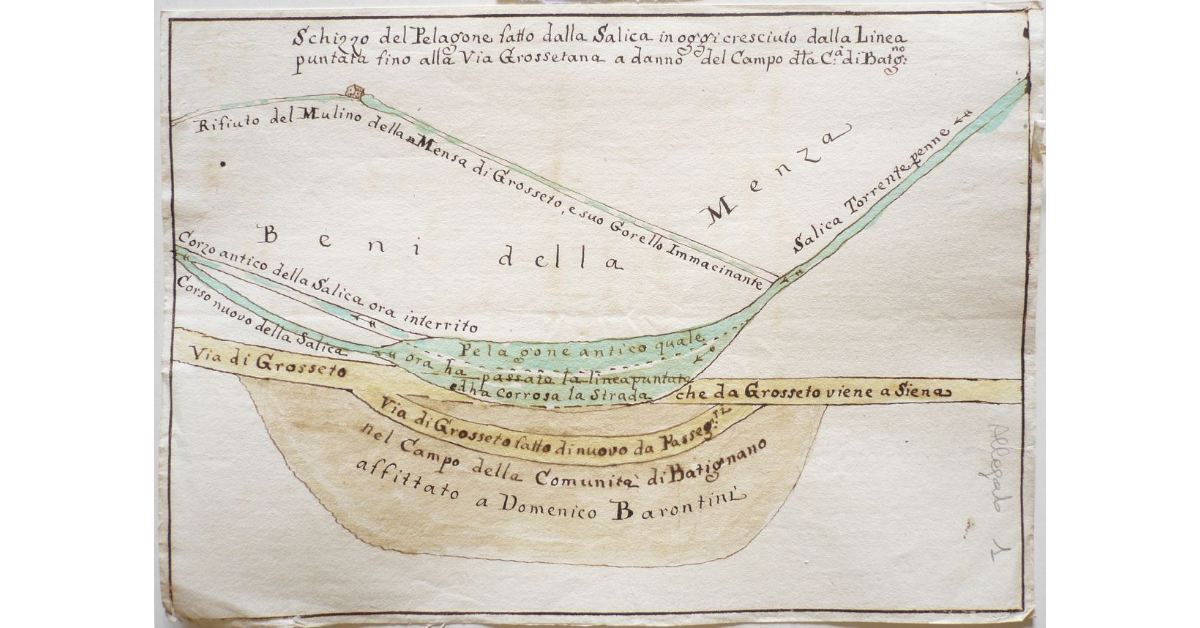 Schizzo del Pelagone fatto dalla Salica in oggi cresciuto dalla Linea
puntata fino alla Via Grossetana a danno del Campo dtta C.a di Batig.no
Rifiuto del Mulino della Mensa di Grosseto, e suo Gorello Immacinante
Menza
Salica Torrente penne
Beni della
Corzo antico della Salica ora interrito
Corso nuovo della Salica
Pelagone antico quale
ora ha passato la linea puntata
ed ha corrosa la Strada
Via di Grosseto
che da Grosseto viene a Siena
Via di Grosseto fatto di nuovo da Passeg.ri
nel Campo della Comunità di Batignano
affittato a Domenico Barontini
Allegato 1